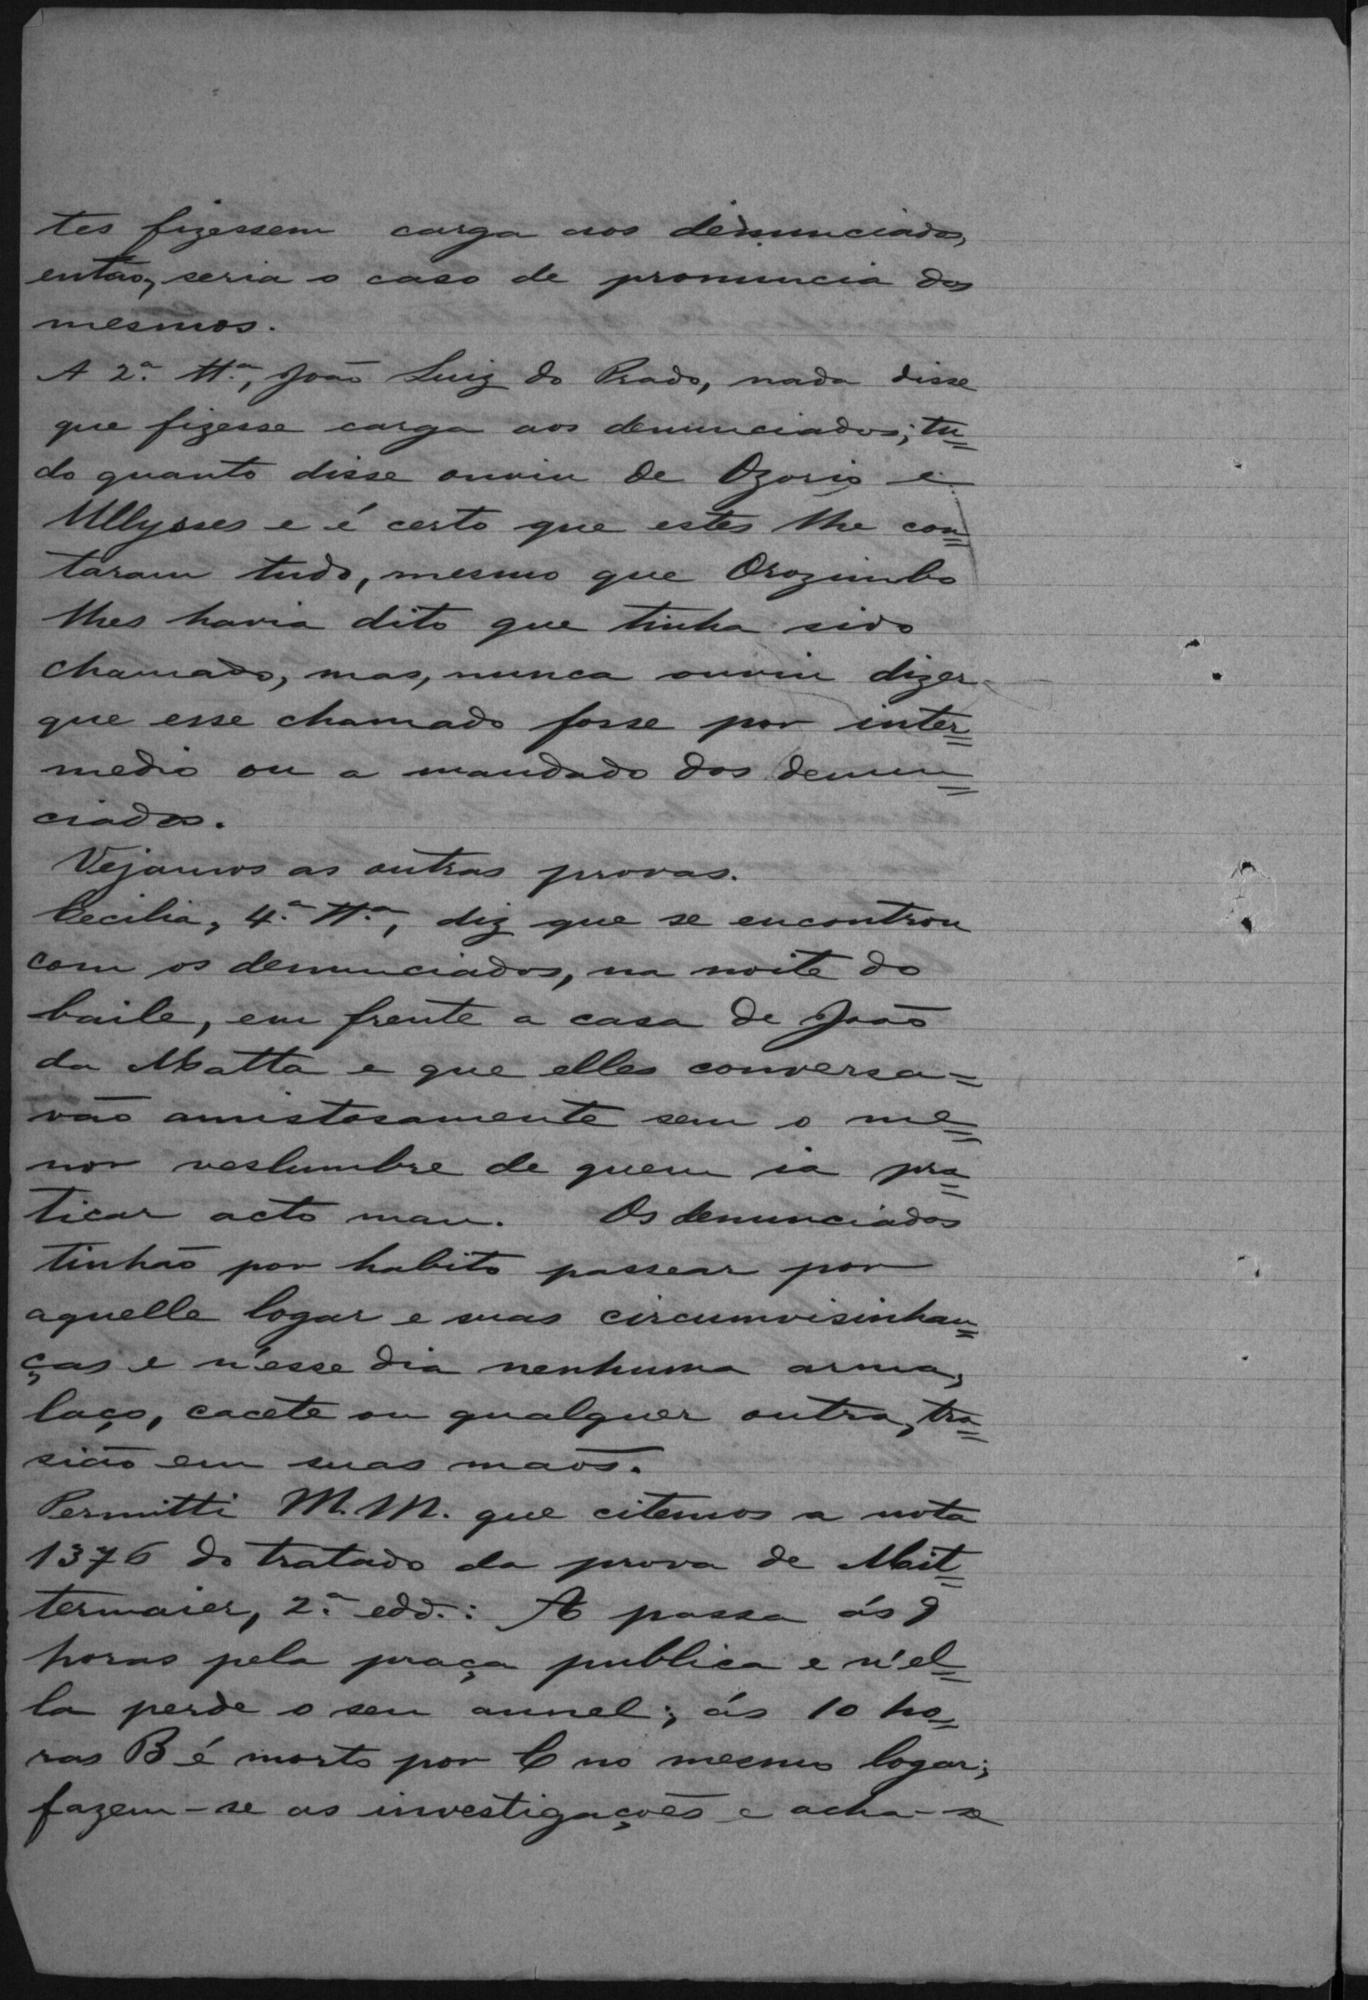 tes fizessem carga aos denunciados,
então, seria o caso de pronuncia dos
mesmos.
A 2.ª tt.ª, João Luiz do Prado, nada disse
que fizesse carga aos denunciados; tu=
do quanto disse ouviu de Ozorio e
Ullysses e é certo que estes lhe con=
taram tudo, mesmo que Orozimbo
lhes havia dito que tinha sido
chamado, mas, nunca ouviu dizer
que esse chamado fosse por inter=
medio ou a mandado dos denun=
ciados.
Vejamos as outras provas.
Cecilia, 4.ª tt.ª, diz que se encontrou
com os denunciados, na noite do
baile, em frente a casa de João
da Matta e que elles conversa=
vão amistosamente sem o me=
nor veslumbre de quem ia pra=
ticar acto mau. Os denunciados
tinhão por habito passear por
aquelle logar e suas circumvisinhan=
ças e n'esse dia nenhuma arma,
laço, cacete ou qualquer outra, tra=
sião em suas mãos.
Permitti M.M. que citemos a nota
1376 do tratado da prova de Mit=
termaier, 2.ª edd.: A passa ás 9
horas pela praça publica e n'el=
la perde o seu annel; ás 10 ho=
ras B é morto por C no mesmo logar;
fazem-se as investigações e acha-se